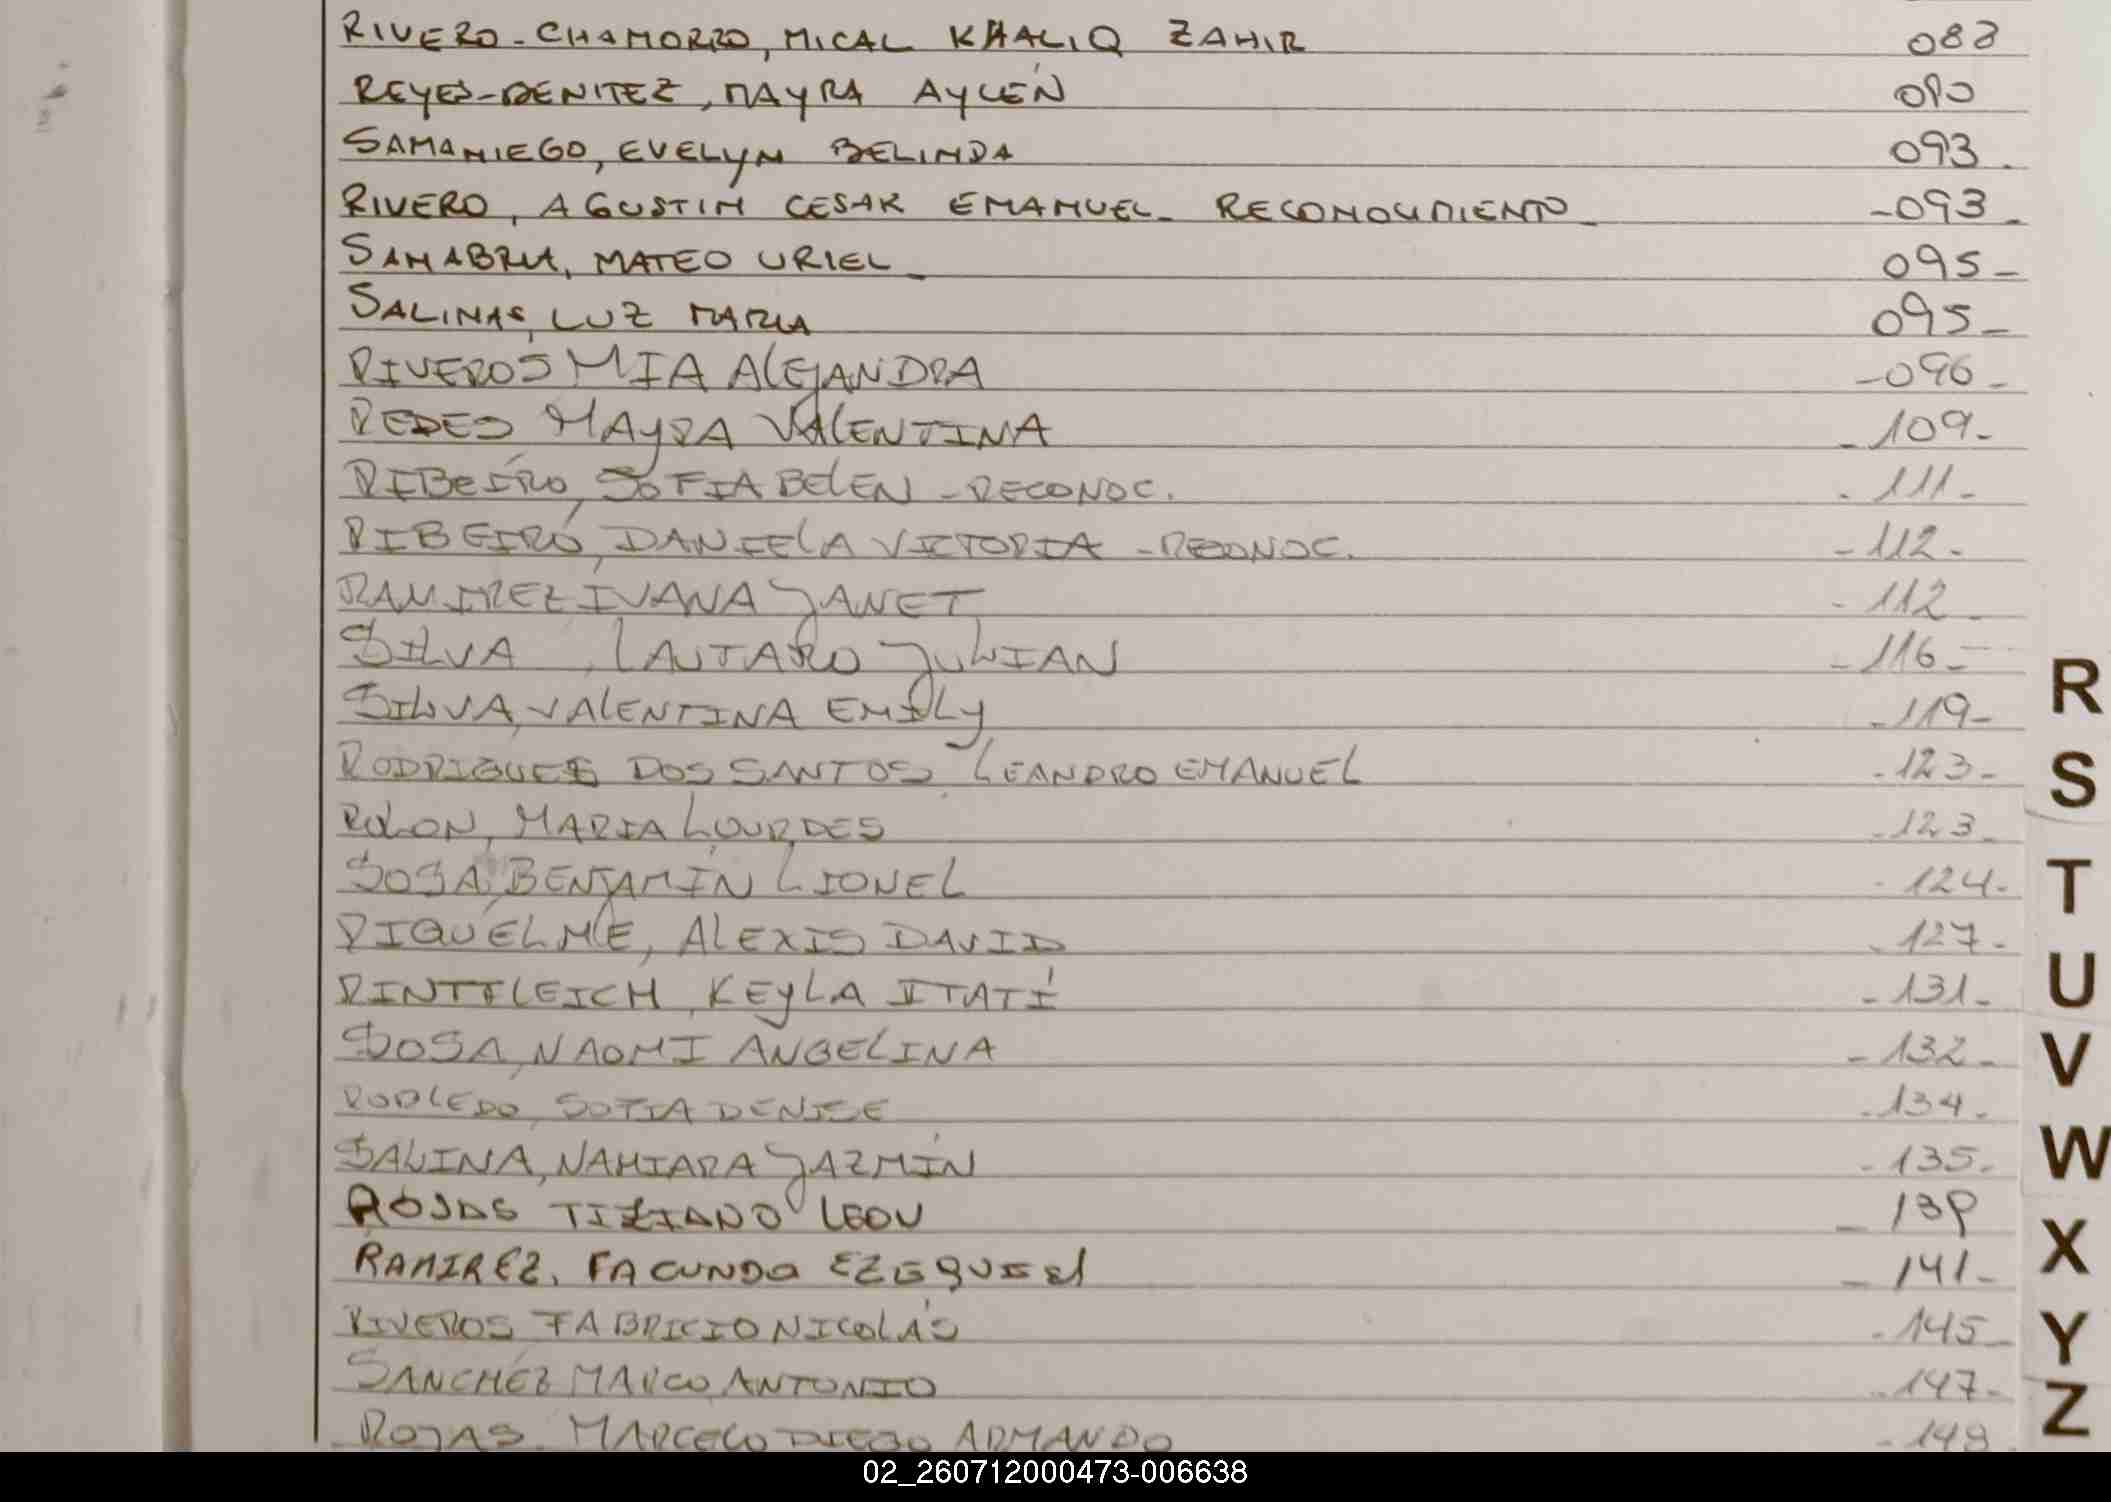 RIVERO-CHAMORRO, MICAL KHALIQ ZAHIR 088
REYES-BENITEZ, MAYRA AYLÉN 090
SAMANIEGO, EVELYN BELINDA 093.
RIVERO, AGUSTIN CESAR EMANUEL- RECONOCIMIENTO- -093-
SANABRIA, MATEO URIEL- 095-
SALINAS, LUZ MARIA 095-
RIVEROS MIA ALEJANDRA -096-
REDES MAYRA VALENTINA -109-
RIBEIRO, SOFIA BELEN -RECONOC. -111-
RIBEIRO, DANIELA VICTORIA -RECONOC. -112-
RAMIREZ IVANA JANET -112-
SILVA, LAUTARO JULIAN -116-
SILVA, VALENTINA EMILY -119-
RODRIGUES DOS SANTOS LEANDRO EMANUEL -123-
ROLON, MARIA LOURDES -123-
SOSA, BENJAMÍN LIONEL -124-
RIQUELME, ALEXIS DAVID -127-
RINTFLEICH, KEYLA ITATÍ -131-
SOSA, NAOMI ANGELINA -132-
ROBLEDO, SOFIA DENISE -134-
SALINA, NAHIARA JAZMÍN -135-
ROJAS TIZIANO LEON - 139
RAMIREZ, FACUNDO EZEQUIEL - 141-
RIVEROS FABRICIO NICOLÁS -145-
SANCHEZ MARCO ANTONIO -147-
ROJAS, MARCELO DIEGO ARMANDO -148-
R
S
T
U
V
W
X
Y
Z
02_260712000473-006638